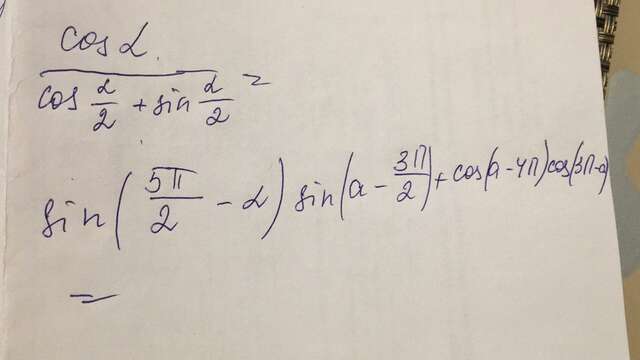 cos α / (cos α/2 + sin α/2) =
sin(5π/2 - α) sin(α - 3π/2) + cos(α - 4π) cos(3π - α)
=